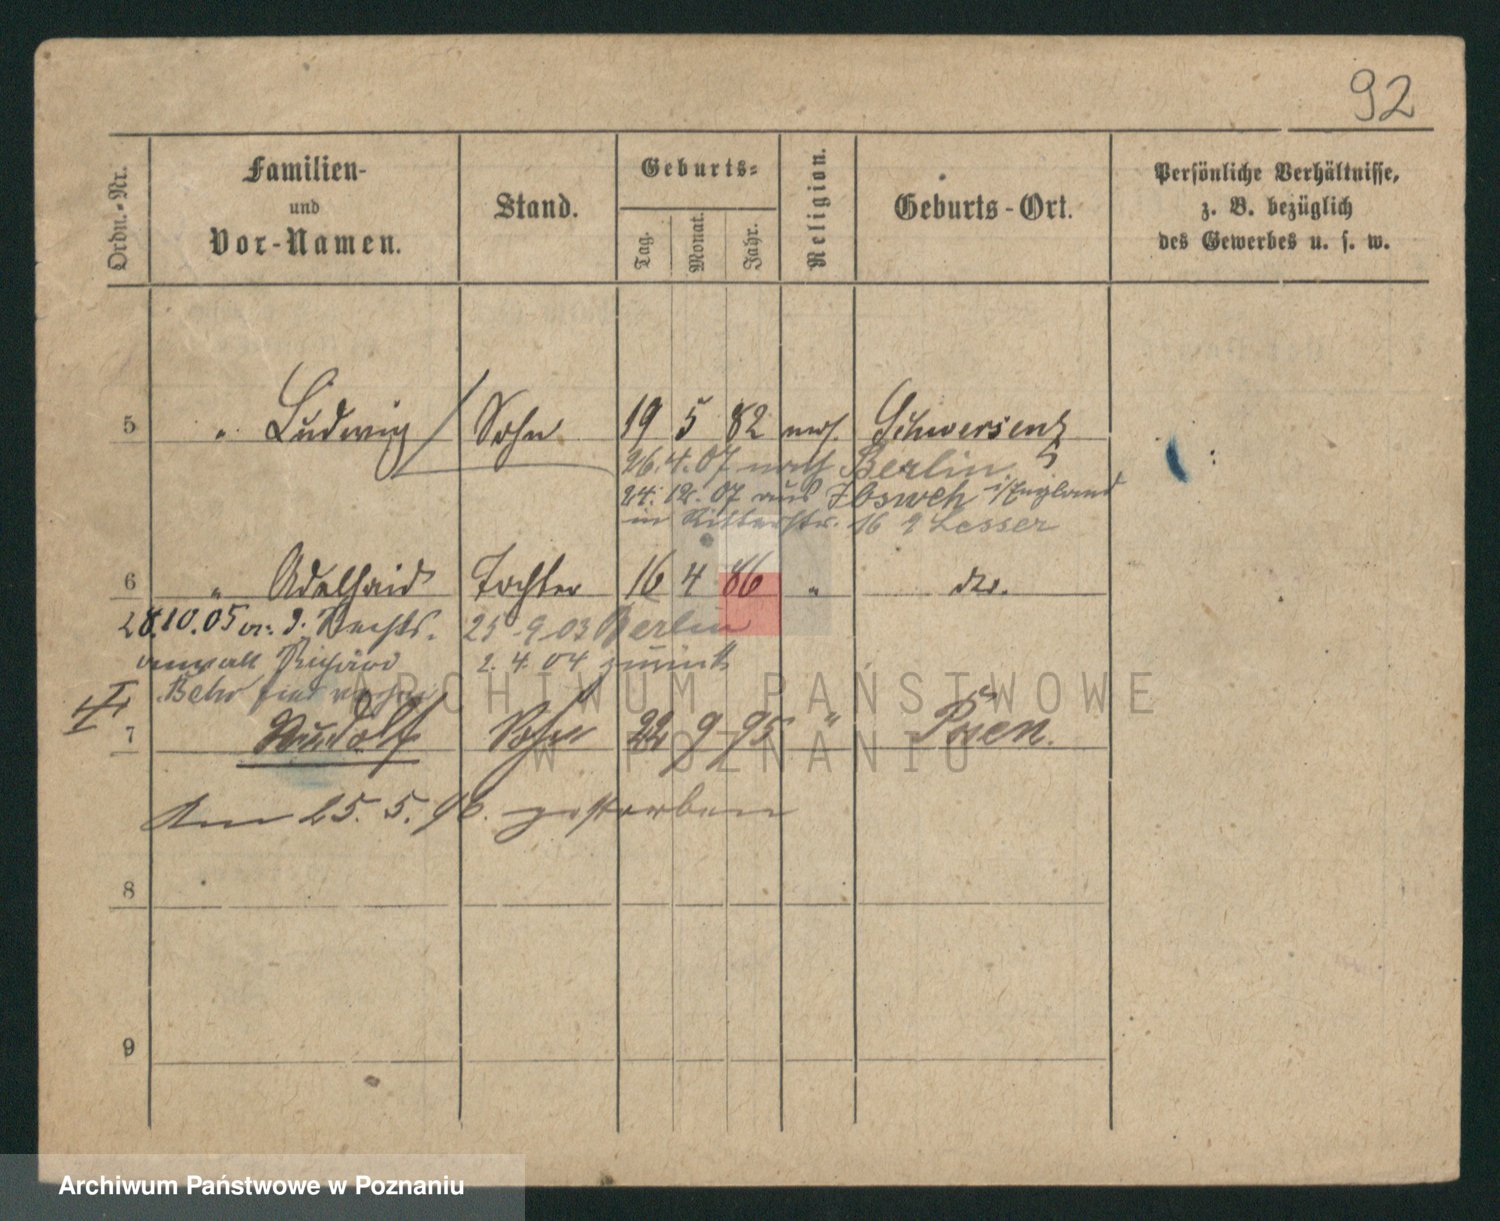 92
Ordn.-Nr. Familien- und Vor-Namen. Stand. Geburts- Tag. Monat. Jahr. Religion. Geburts-Ort. Persönliche Verhältnisse, z. B. bezüglich des Gewerbes u. s. w.
5 " Ludwig Sohn 19 5 82 mos. Schwersenz
26.4.07 nach Berlin.
24.12.07 aus i/England
in Ritterstr. 16 Lesser
6 " Adelhaid Tochter 16 4 86 " do.
28.10.05 Rechts- 25.9.03 Berlin
anwalt Richard 2.4.04 zurück
Behr
7 Rudolf Sohn 22 9 95 " Posen.
Am 25.5.96. gestorben
8
9
ARCHIWUM PAŃSTWOWE
W POZNANIU
Archiwum Państwowe w Poznaniu